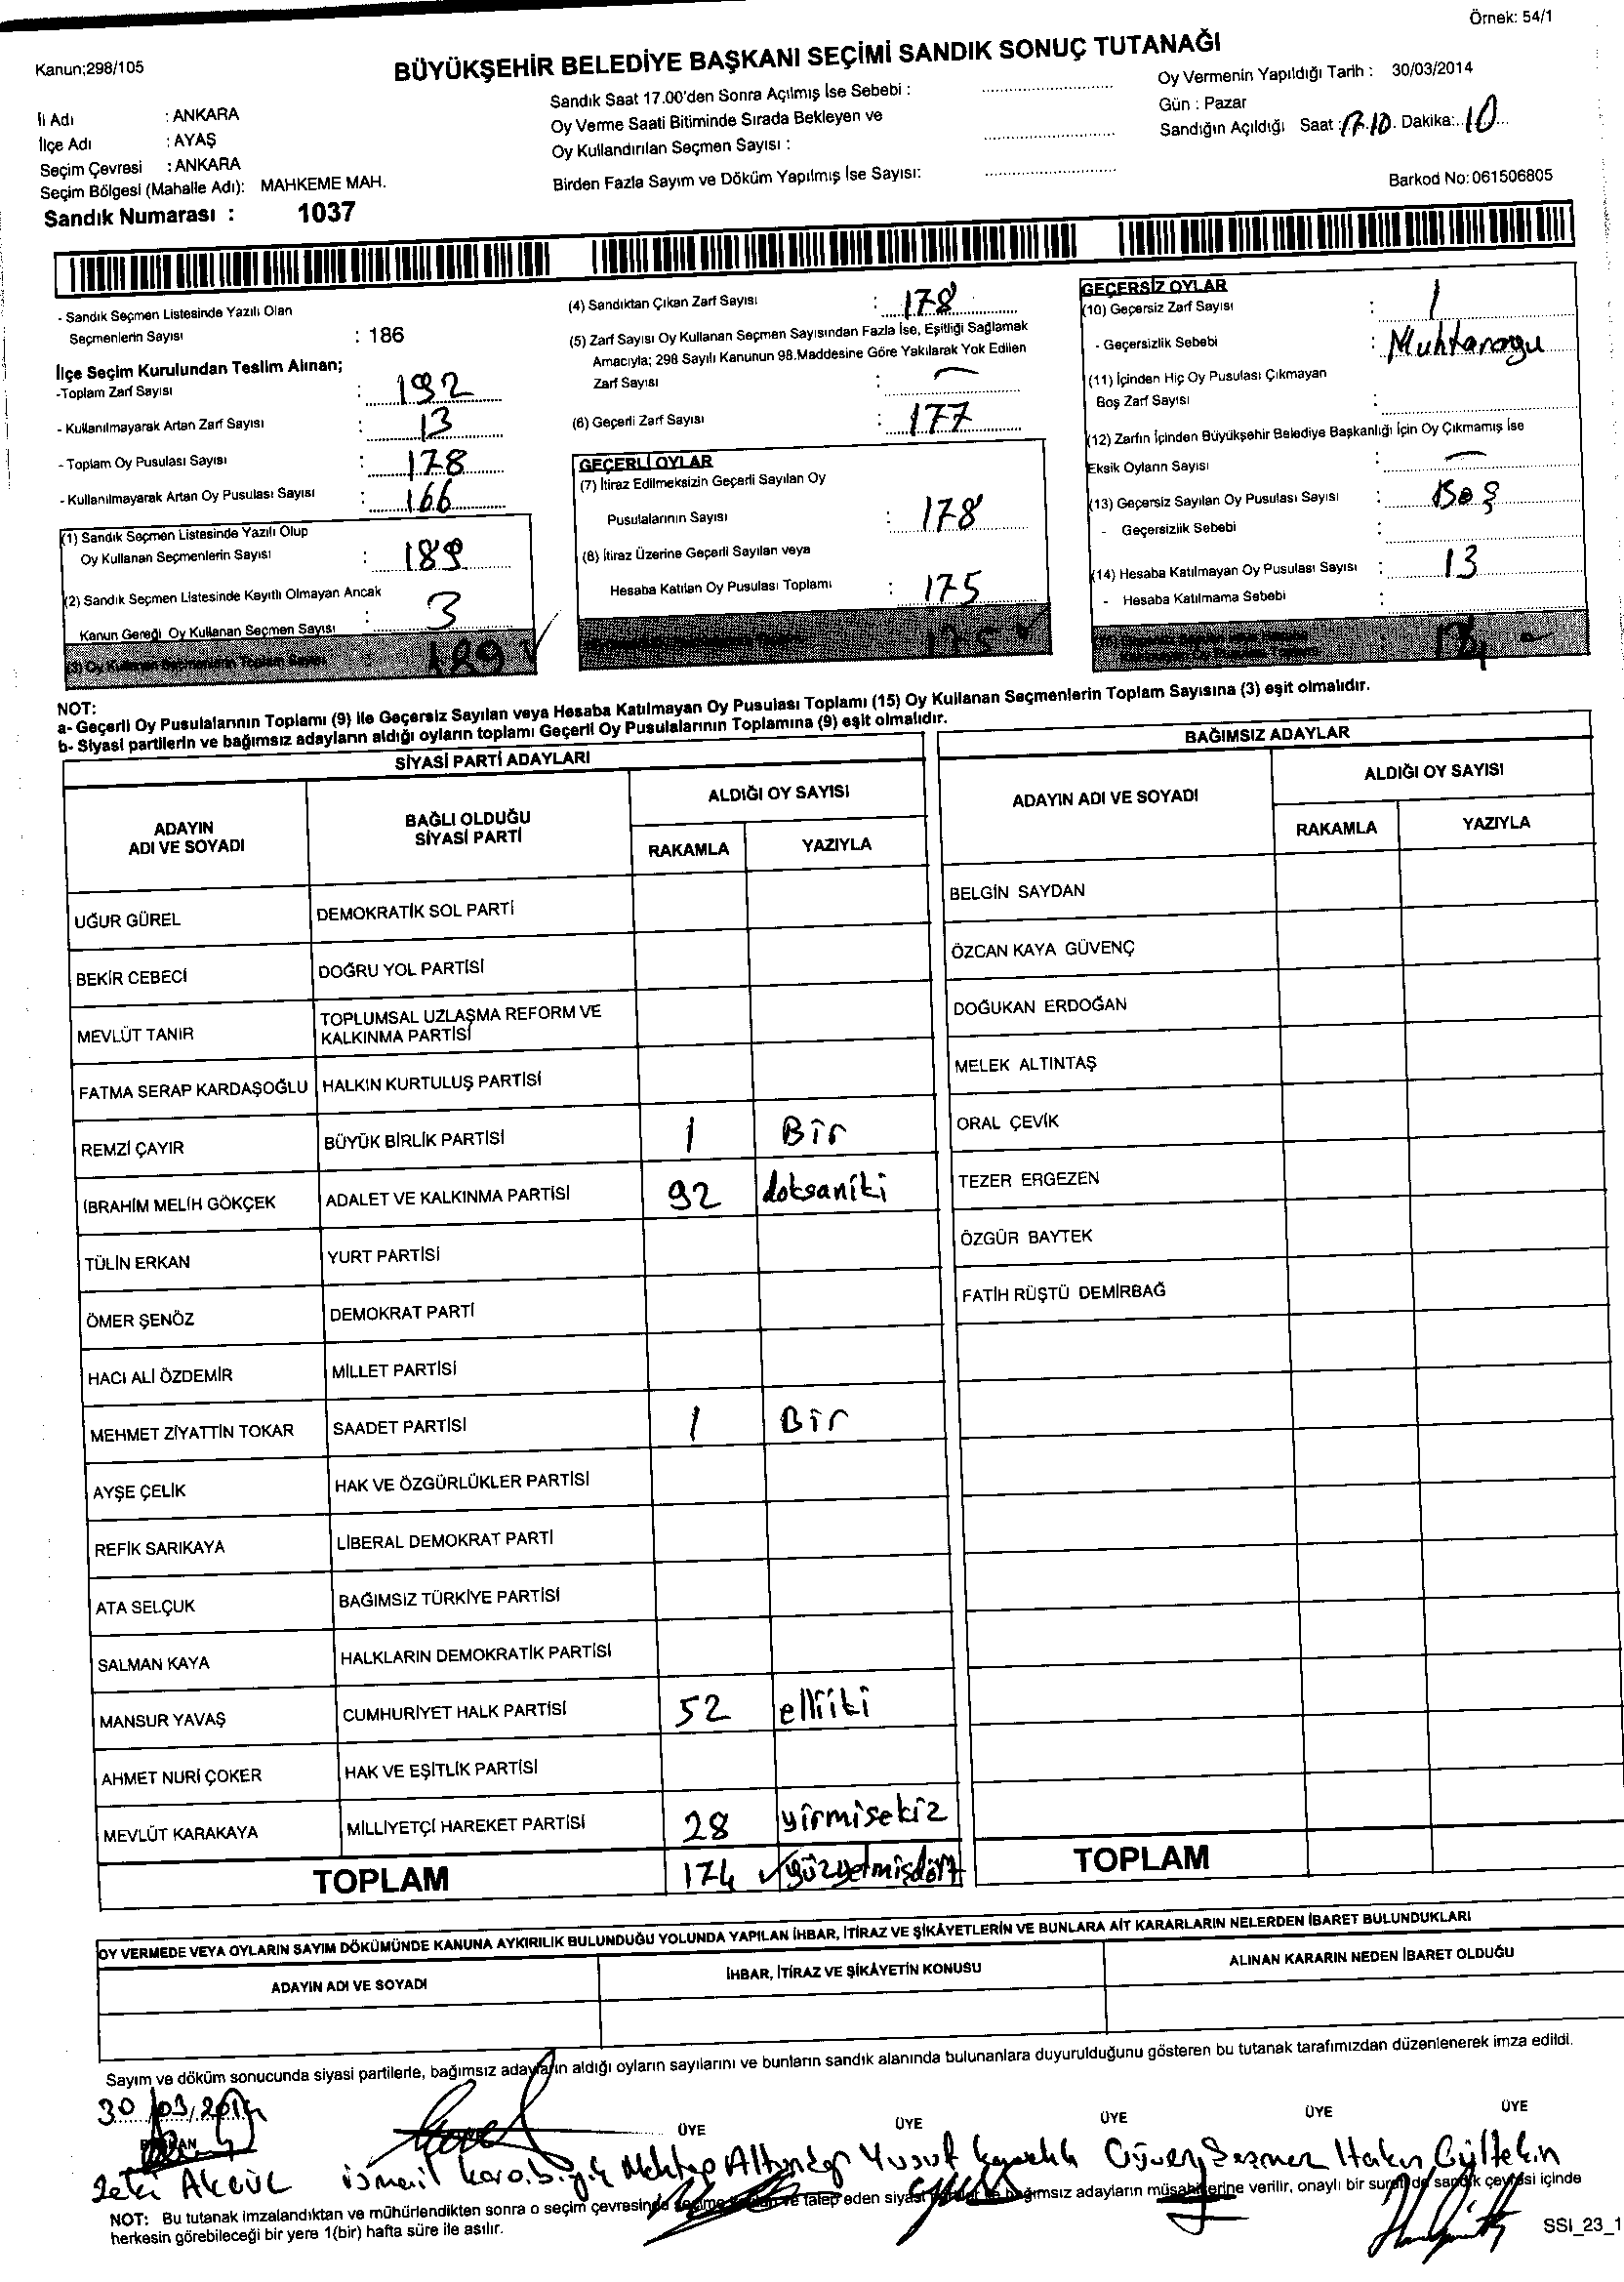 Örnek: 54/1
Kanun;298/105
BÜYÜKŞEHİR BELEDİYE BAŞKANI SEÇİMİ SANDIK SONUÇ TUTANAĞI
İl Adı : ANKARA
İlçe Adı : AYAŞ
Seçim Çevresi : ANKARA
Seçim Bölgesi (Mahalle Adı): MAHKEME MAH.
Sandık Numarası : 1037
Sandık Saat 17.00'den Sonra Açılmış İse Sebebi :
Oy Verme Saati Bitiminde Sırada Bekleyen ve
Oy Kullandırılan Seçmen Sayısı :
Birden Fazla Sayım ve Döküm Yapılmış İse Sayısı:
Oy Vermenin Yapıldığı Tarih : 30/03/2014
Gün : Pazar
Sandığın Açıldığı Saat : 17.10. Dakika: 10
Barkod No: 061506805
- Sandık Seçmen Listesinde Yazılı Olan
Seçmenlerin Sayısı : 186
İlçe Seçim Kurulundan Teslim Alınan;
-Toplam Zarf Sayısı : 192
- Kullanılmayarak Artan Zarf Sayısı : 13
- Toplam Oy Pusulası Sayısı : 178
- Kullanılmayarak Artan Oy Pusulası Sayısı : 166
(1) Sandık Seçmen Listesinde Yazılı Olup
Oy Kullanan Seçmenlerin Sayısı : 189
(2) Sandık Seçmen Listesinde Kayıtlı Olmayan Ancak
Kanun Gereği Oy Kullanan Seçmen Sayısı : 3
(3) Oy Kullanan Seçmenlerin Toplam Sayısı : 189
(4) Sandıktan Çıkan Zarf Sayısı : 178
(5) Zarf Sayısı Oy Kullanan Seçmen Sayısından Fazla İse, Eşitliği Sağlamak
Amacıyla; 298 Sayılı Kanunun 98.Maddesine Göre Yakılarak Yok Edilen
Zarf Sayısı : —
(6) Geçerli Zarf Sayısı : 177
GEÇERLİ OYLAR
(7) İtiraz Edilmeksizin Geçerli Sayılan Oy
Pusulalarının Sayısı : 178
(8) İtiraz Üzerine Geçerli Sayılan veya
Hesaba Katılan Oy Pusulası Toplamı : 175
175
GEÇERSİZ OYLAR
(10) Geçersiz Zarf Sayısı : 1
- Geçersizlik Sebebi :
(11) İçinden Hiç Oy Pusulası Çıkmayan
Boş Zarf Sayısı :
(12) Zarfın İçinden Büyükşehir Belediye Başkanlığı İçin Oy Çıkmamış İse
Eksik Oyların Sayısı : —
(13) Geçersiz Sayılan Oy Pusulası Sayısı : Boş
- Geçersizlik Sebebi :
(14) Hesaba Katılmayan Oy Pusulası Sayısı : 13
- Hesaba Katılmama Sebebi :
NOT:
a- Geçerli Oy Pusulalarının Toplamı (9) ile Geçersiz Sayılan veya Hesaba Katılmayan Oy Pusulası Toplamı (15) Oy Kullanan Seçmenlerin Toplam Sayısına (3) eşit olmalıdır.
b- Siyasi partilerin ve bağımsız adayların aldığı oyların toplamı Geçerli Oy Pusulalarının Toplamına (9) eşit olmalıdır.
SİYASİ PARTİ ADAYLARI
ADAYIN ADI VE SOYADI BAĞLI OLDUĞU SİYASİ PARTİ ALDIĞI OY SAYISI
RAKAMLA YAZIYLA
UĞUR GÜREL DEMOKRATİK SOL PARTİ
BEKİR CEBECİ DOĞRU YOL PARTİSİ
MEVLÜT TANIR TOPLUMSAL UZLAŞMA REFORM VE KALKINMA PARTİSİ
FATMA SERAP KARDAŞOĞLU HALKIN KURTULUŞ PARTİSİ
REMZİ ÇAYIR BÜYÜK BİRLİK PARTİSİ 1 Bir
İBRAHİM MELİH GÖKÇEK ADALET VE KALKINMA PARTİSİ 92 doksaniki
TÜLİN ERKAN YURT PARTİSİ
ÖMER ŞENÖZ DEMOKRAT PARTİ
HACI ALİ ÖZDEMİR MİLLET PARTİSİ
MEHMET ZİYATTİN TOKAR SAADET PARTİSİ 1 Bir
AYŞE ÇELİK HAK VE ÖZGÜRLÜKLER PARTİSİ
REFİK SARIKAYA LİBERAL DEMOKRAT PARTİ
ATA SELÇUK BAĞIMSIZ TÜRKİYE PARTİSİ
SALMAN KAYA HALKLARIN DEMOKRATİK PARTİSİ
MANSUR YAVAŞ CUMHURİYET HALK PARTİSİ 52 elliiki
AHMET NURİ ÇOKER HAK VE EŞİTLİK PARTİSİ
MEVLÜT KARAKAYA MİLLİYETÇİ HAREKET PARTİSİ 28 yirmisekiz
TOPLAM 174 yüzyetmişdört
BAĞIMSIZ ADAYLAR
ADAYIN ADI VE SOYADI ALDIĞI OY SAYISI
RAKAMLA YAZIYLA
BELGİN SAYDAN
ÖZCAN KAYA GÜVENÇ
DOĞUKAN ERDOĞAN
MELEK ALTINTAŞ
ORAL ÇEVİK
TEZER ERGEZEN
ÖZGÜR BAYTEK
FATİH RÜŞTÜ DEMİRBAĞ
TOPLAM
OY VERMEDE VEYA OYLARIN SAYIM DÖKÜMÜNDE KANUNA AYKIRILIK BULUNDUĞU YOLUNDA YAPILAN İHBAR, İTİRAZ VE ŞİKÂYETLERİN VE BUNLARA AİT KARARLARIN NELERDEN İBARET BULUNDUKLARI
ADAYIN ADI VE SOYADI İHBAR, İTİRAZ VE ŞİKÂYETİN KONUSU ALINAN KARARIN NEDEN İBARET OLDUĞU
Sayım ve döküm sonucunda siyasi partilerle, bağımsız adayların aldığı oyların sayılarını ve bunların sandık alanında bulunanlara duyurulduğunu gösteren bu tutanak tarafımızdan düzenlenerek imza edildi.
30/03/2014
BAŞKAN ÜYE ÜYE ÜYE ÜYE ÜYE
Zeki ismail Yusuf Hakan Gültekin
NOT: Bu tutanak imzalandıktan ve mühürlendikten sonra o seçim çevresinde talep eden siyasi bağımsız adayların müşahitlerine verilir, onaylı bir sureti de sandık çevresi içinde
herkesin görebileceği bir yere 1(bir) hafta süre ile asılır.
SSI_23_1